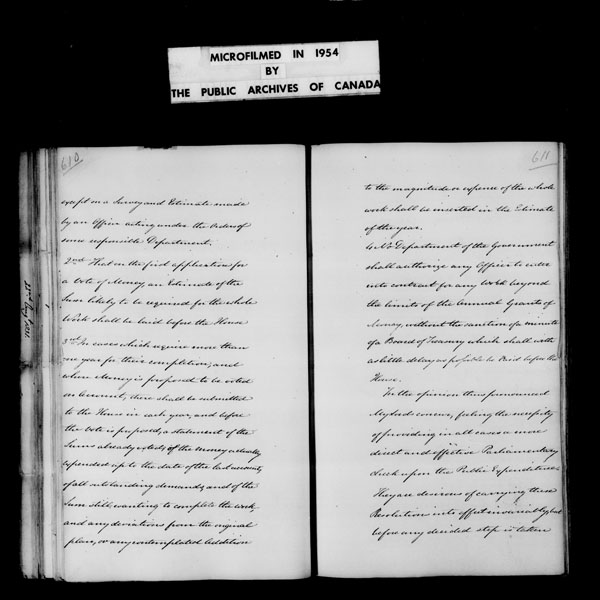 MICROFILMED IN 1954
BY
THE PUBLIC ARCHIVES OF CANADA
610
except on a Survey and Estimate made
by an Officer acting under the Orders of
some responsible Department.
2nd That on the first application for
a Vote of Money, an Estimate of the
Sum likely to be required for the whole
Work shall be laid before the House
3rd In cases which require more than
one year for their completion, and
where Money is proposed to be voted
on Account, there shall be submitted
to the House in each year, and before
the Vote is proposed, a statement of the
Sums already voted, of the Money actually
expended up to the date of the last account,
of all outstanding demands, and of the
Sum still wanting to complete the work
and any deviations from the original
plan, or any contemplated Addition
611
to the magnitude or expense of the whole
work shall be inserted in the Estimate
of the year.
4. No Department of the Government
shall authorize any Officer to enter
into contract for any Work beyond
the limits of the Annual Grants of
Money, without the sanction of a minute
of a Board of Treasury which shall with
as little delay as possible be laid before the
House.
In the opinion thus pronounced
My Lords concur, feeling the necessity
of providing in all cases a more
direct and effective Parliamentary
check upon the Public Expenditure.
They are desirous of carrying these
Resolution into effect invariably, but
before any decided step is taken